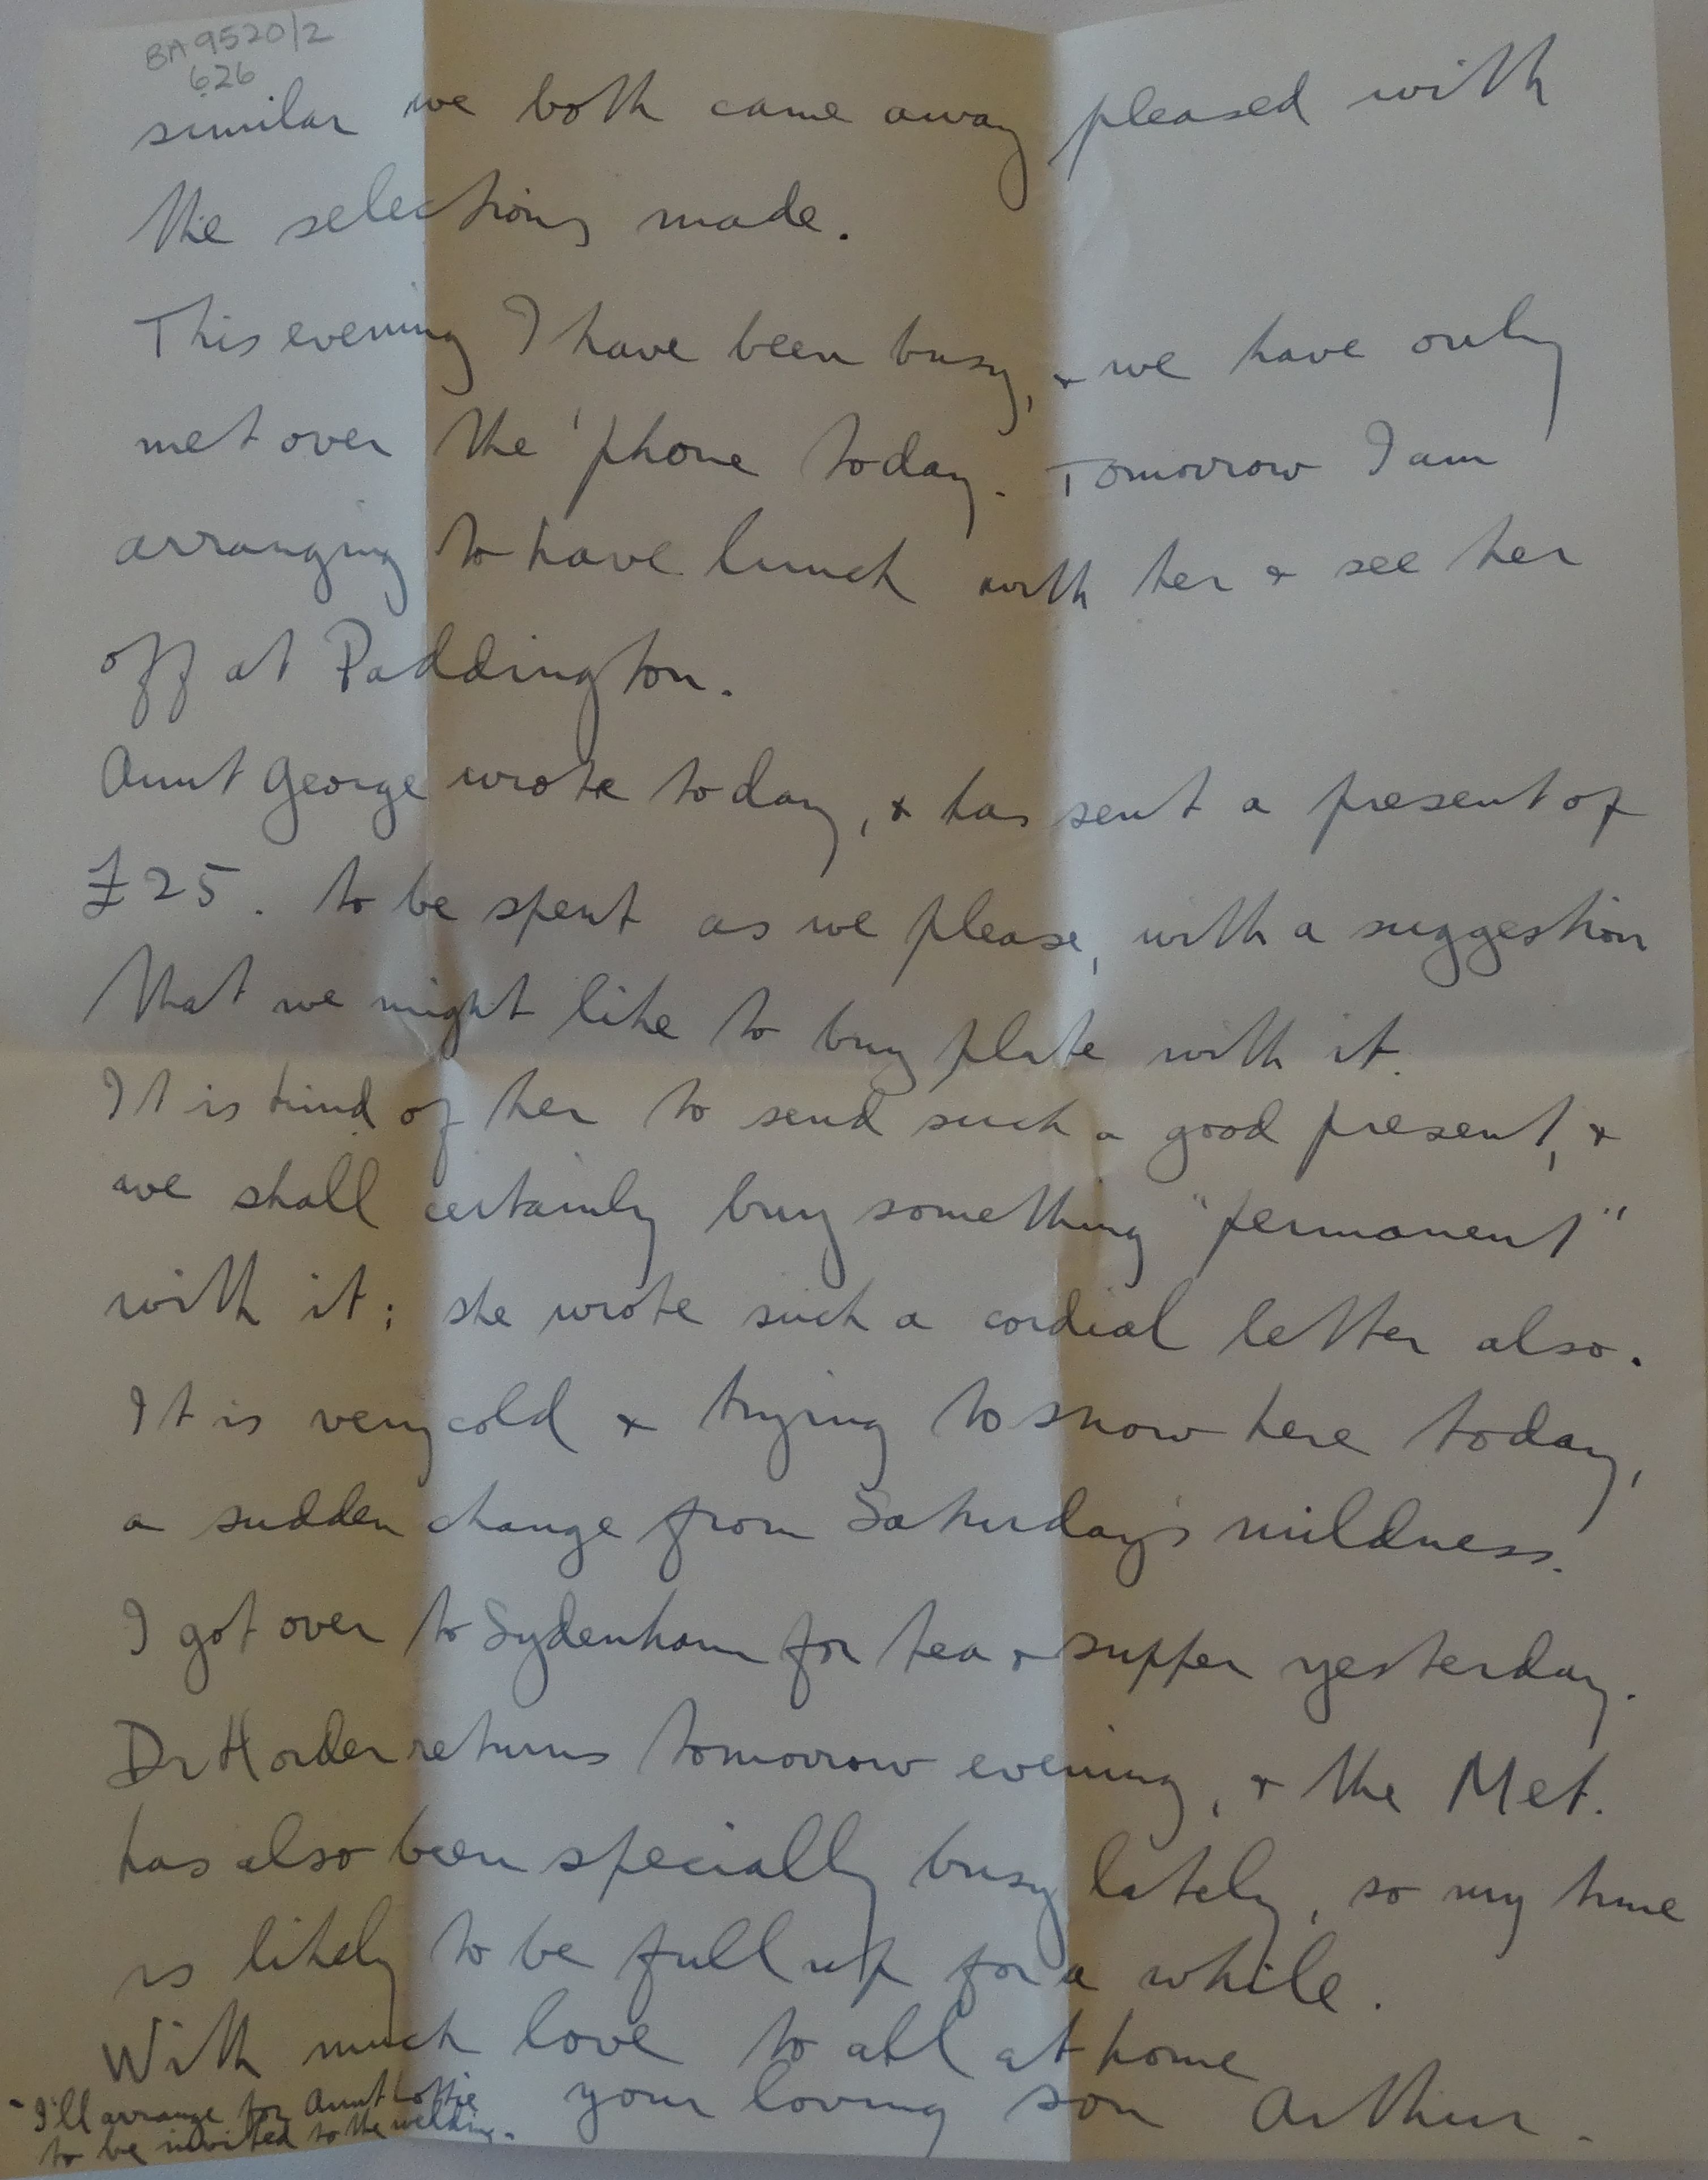 BA 9520/2
626
similar we both came away pleased with
the selections made.
This evening I have been busy, & we have only
met over the 'phone today. Tomorrow I am
arranging to have lunch with her & see her
off at Paddington.
Aunt George wrote today, & has sent a present of
£25. to be spent as we please, with a suggestion
that we might like to buy plate with it.
It is kind of her to send such a good present, &
we shall certainly buy something "permanent"
with it; she wrote such a cordial letter also.
It is very cold & trying to snow here today,
a sudden change from Saturday's mildness.
I got over to Sydenham for tea & supper yesterday.
Dr Horder returns tomorrow evening, & the Met.
has also been specially busy lately, so my time
is likely to be full up for a while.
With much love to all at home
your loving son Arthur.
- I'll arrange for Aunt Lottie
to be invited to the wedding. -